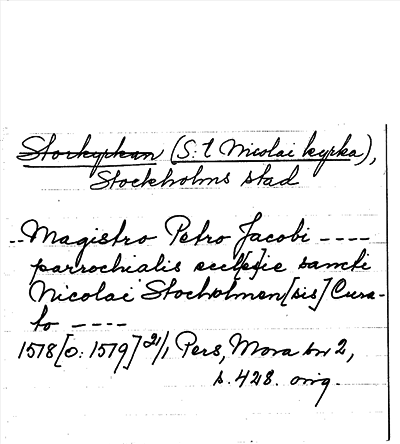 Storkyrkan (S:t Nicolai kyrka),
Stockholms stad
..Magistro Petro Jacobi ----
parrochialis eccl[es]ie sancti
Nicolai Stocholmen[sis] Cura-
to ----
1578[o: 1579] 21/1 Pers, Mora br 2,
s. 428. orig.